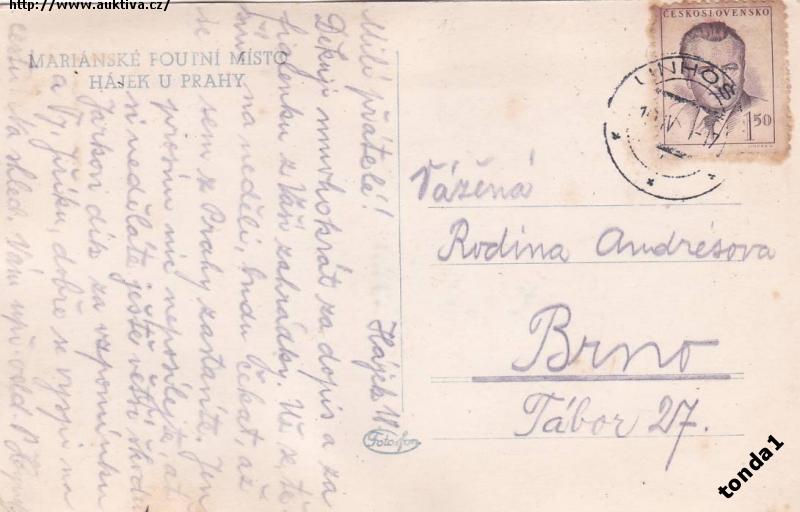 Zdroj: http://www.auktiva.cz/
MARIÁNSKÉ POUTNÍ MÍSTO
HÁJEK U PRAHY
Hájek
Milí přátelé!
Děkuji mnohokrát za dopis a za
fialenku z Vaší zahrádky. Už se tě-
ším na neděli, budu čekat, až
se sem z Prahy zastavíte. Jen
prosím nic neposílejte, ať
si neděláte ještě větší škodu
Jarkovi dík za vzpomínku
a Ty, Jiříku, dobře se vyspi na
cestu. Na shled. Vám upř. odd.
Fotofon
ČESKOSLOVENSKO
1.50
UNHOŠ
Vážená
Rodina Andrésova
Brno
Tábor 27.
tonda1